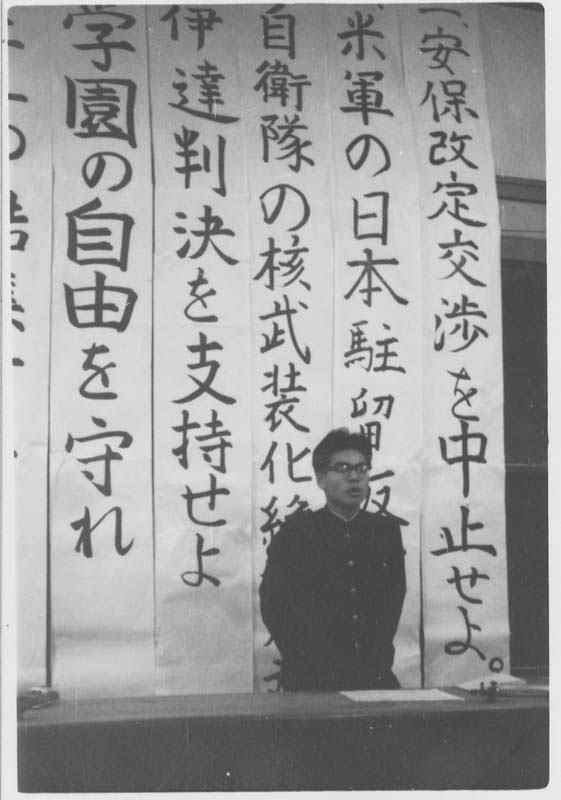 一、安保改定交渉を中止せよ。
米軍の日本駐留反
自衛隊の核武装化絶
伊達判決を支持せよ
学園の自由を守れ